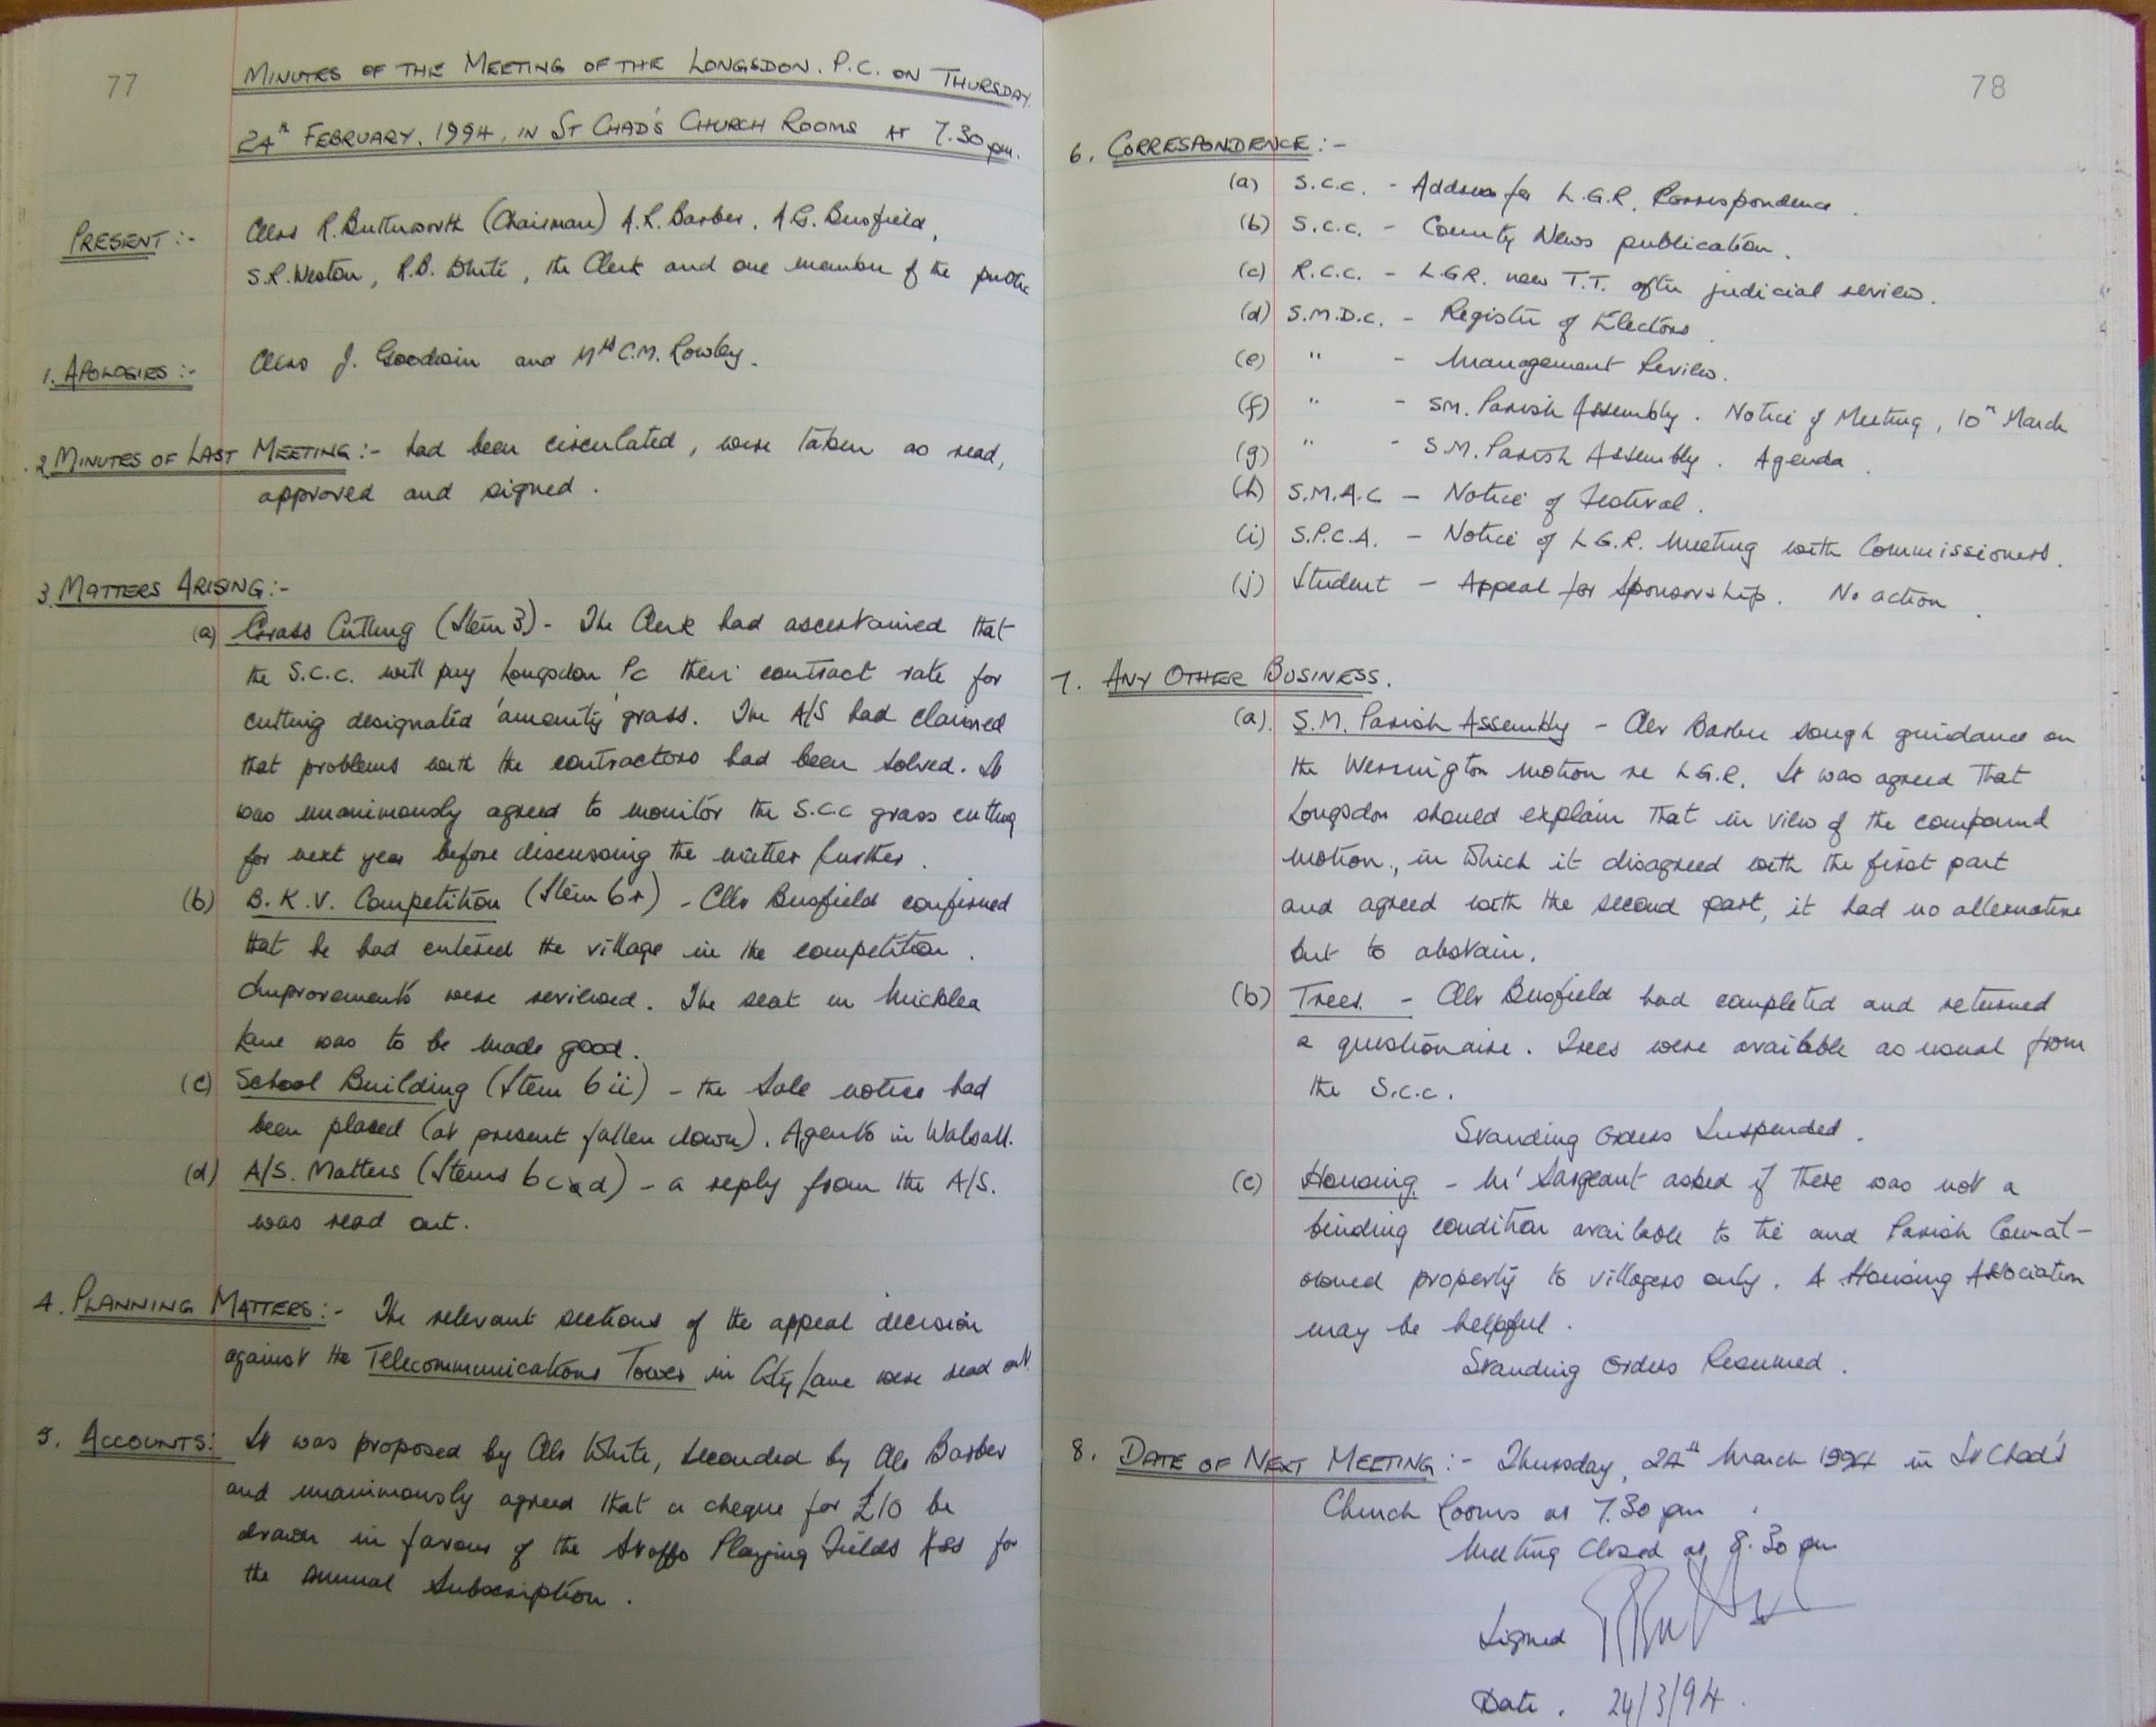 77
MINUTES OF THE MEETING OF THE LONGSDON. P.C. ON THURSDAY
24th FEBRUARY. 1994, IN ST CHAD'S CHURCH ROOMS AT 7.30 pm.
PRESENT :- Cllrs R. Butterworth (Chairman) A.L. Barber, A.G. Busfield,
S.R. Weston, R.B. White, the Clerk and one member of the public
1. APOLOGIES :- Cllrs J. Goodwin and Mrs C.M. Rowley.
2 MINUTES OF LAST MEETING :- had been circulated, were taken as read,
approved and signed.
3. MATTERS ARISING :-
(a) Grass Cutting (Item 3) - The Clerk had ascertained that
the S.C.C. will pay Longsdon PC their contract rate for
cutting designated 'amenity' grass. The A/S had claimed
that problems with the contractors had been solved. It
was unanimously agreed to monitor the S.C.C grass cutting
for next year before discussing the matter further.
(b) B.K.V. Competition (Item 6) - Cllr Busfield confirmed
that he had entered the village in the competition.
Improvements were reviewed. The seat in Micklea
Lane was to be made good.
(c) School Building (Item 6 ii) - the Sale notice had
been placed (at present fallen down). Agents in Walsall.
(d) A/S. Matters (Items 6 c & d) - a reply from the A/S.
was read out.
4. PLANNING MATTERS :- The relevant sections of the appeal decision
against the Telecommunications Tower in City Lane were read out
5. ACCOUNTS: It was proposed by Cllr White, seconded by Cllr Barber
and unanimously agreed that a cheque for £10 be
drawn in favour of the Staffs Playing Fields Ass for
the annual Subscription.
78
6. CORRESPONDENCE :-
(a) S.C.C. - Address for L.G.R. Correspondence.
(b) S.C.C. - County News publication.
(c) R.C.C. - L.G.R. new T.T. after judicial review.
(d) S.M.D.C. - Register of Electors
(e) " - Management Review.
(f) " - SM. Parish Assembly. Notice of Meeting, 10th March
(g) " - S.M. Parish Assembly. Agenda.
(h) S.M.A.C - Notice of Festival.
(i) S.P.C.A. - Notice of L.G.R. Meeting with Commissioners.
(j) Student - Appeal for Sponsorship. No action.
7. ANY OTHER BUSINESS.
(a). S.M. Parish Assembly - Cllr Barber sough guidance on
the Werrington motion re L.G.R. It was agreed that
Longsdon should explain that in view of the compound
motion, in which it disagreed with the first part
and agreed with the second part, it had no alternative
but to abstain.
(b) Trees. - Cllr Busfield had completed and returned
a questionaire. Trees were available as usual from
the S.C.C.
Standing Orders Suspended.
(c) Housing - Mr Sargeant asked if there was not a
binding condition available to tie and Parish Council-
owned property to villagers only. A Housing Association
may be helpful.
Standing Orders Resumed.
8. DATE OF NEXT MEETING :- Thursday, 24th March 1994 in St Chad's
Church Rooms at 7.30 pm
Meeting Closed at 8.30 pm
Signed
Date. 24/3/94.